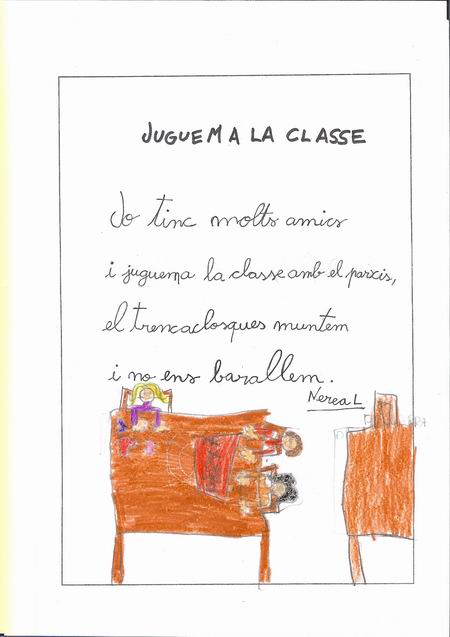 JUGUEM A LA CLASSE
Jo tinc molts amics
i juguem a la classe amb el parxís,
el trencaclosques muntem
i no ens barallem.
Nerea L